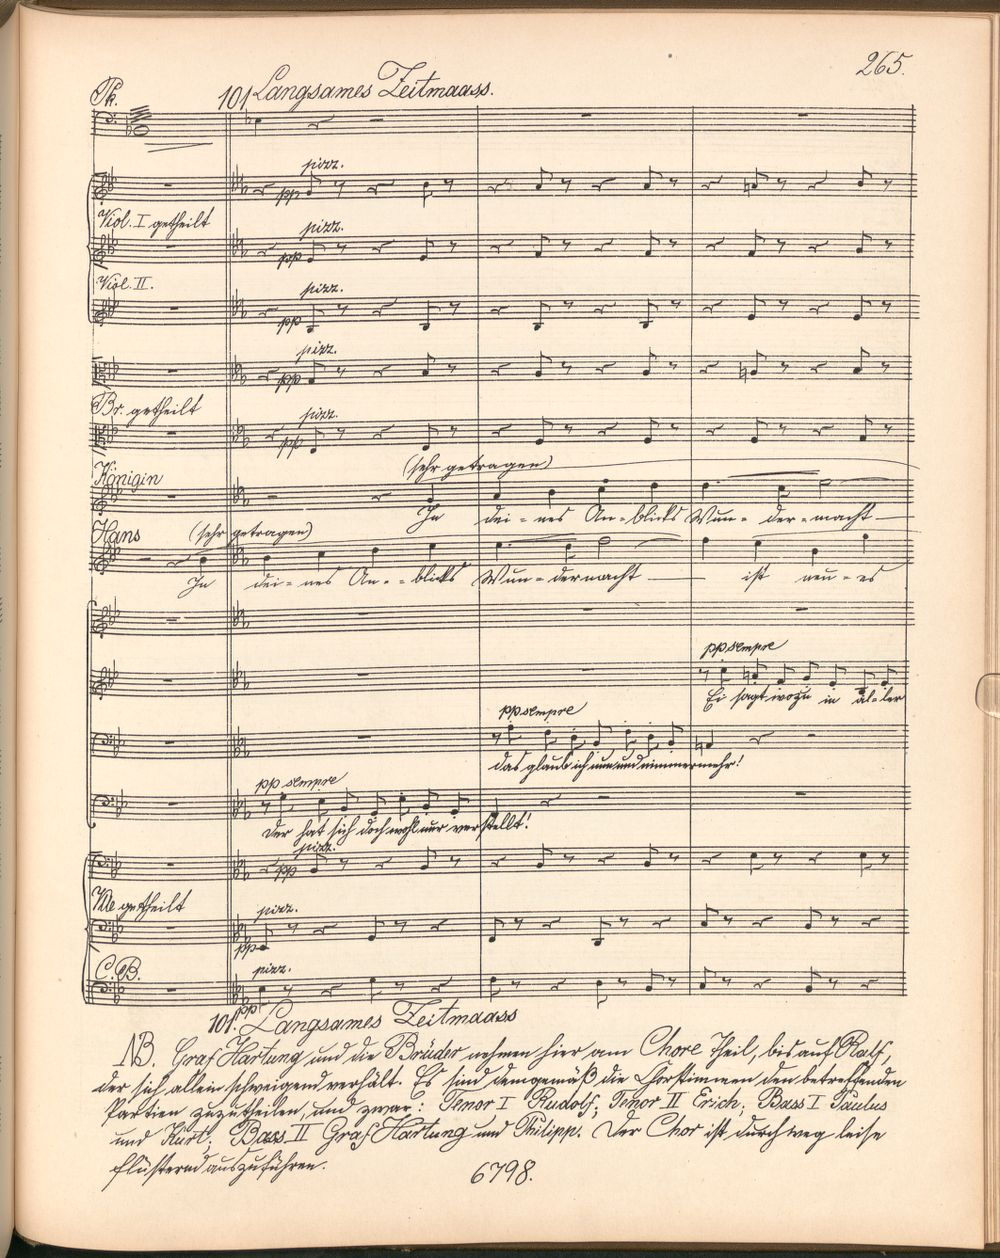 265.
Pk.
101 Langsames Zeitmaass.
pizz.
pp
Viol. I getheilt
pizz.
pp
Viol. II.
pizz.
pp
pizz.
pp
Br. getheilt
pizz.
pp
Königin
(sehr getragen)
In dei = nes An = blicks Wun = der = macht
Hans
(sehr getragen)
In dei = nes An = blicks Wun = dermacht ist neu = es
pp sempre
Ei sagt wozu in al = ler
pp sempre
das glaub ich nun und nimmermehr!
pp sempre
Der hat sich doch wohl nur verstellt!
pizz.
pp
Vlle getheilt
pizz.
pp
C.B.
pizz.
pp
101. Langsames Zeitmaass
NB. Graf Hartung und die Brüder nehmen hier am Chore Theil, bis auf Ralf,
der sich allein schweigend verhält. Es sind demgemäß die Chorstimmen den betreffenden
Partien zuzutheilen, und zwar: Tenor I Rudolf; Tenor II Erich; Bass I Paulus
und Kurt; Bass II Graf Hartung und Philipp. Der Chor ist durchweg leise
flüsternd auszuführen.
6798.